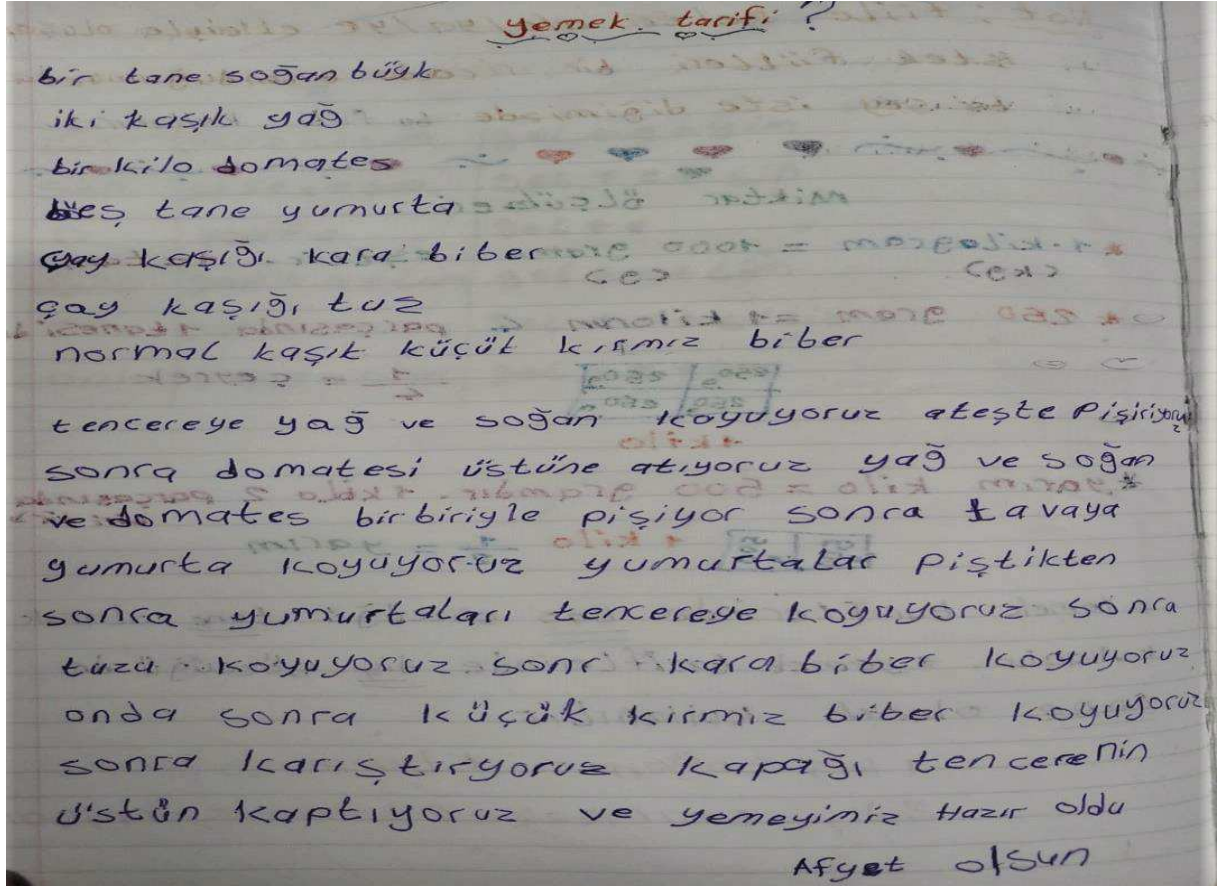 yemek tarifi ?
bir tane soğan büyk
iki kaşık yağ
bir kilo domates
beş tane yumurta
çay kaşığı kara biber
çay kaşığı tuz
normal kaşık küçük kırmız biber
tencereye yağ ve soğan koyuyoruz ateşte Pişiriyoruz
sonra domatesi üstüne atıyoruz yağ ve soğan
ve domates birbiriyle pişiyor sonra tavaya
yumurta koyuyoruz yumurtalar Piştikten
sonra yumurtaları tencereye koyuyoruz sonra
tuzu koyuyoruz sonr kara biber koyuyoruz
onda sonra küçük kirmiz biber koyuyoruz
sonra karıştıryoruz kapağı tencerenin
üstün kaptıyoruz ve yemeyimiz Hazır oldu
Afyet olsun